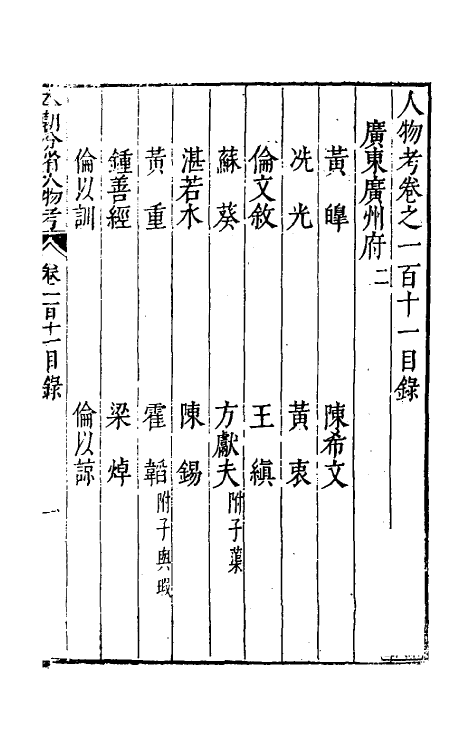 人物考卷之一百十一目錄
廣東廣州府二
黃皡 陳希文
冼光 黃衷
倫文敘 王縝
蘇葵 方獻夫附子藻
湛若水 陳錫
黃重 霍韜附子與瑕
鍾善經 梁焯
倫以訓 倫以諒
本朝分省人物考 卷一百十一目錄 一